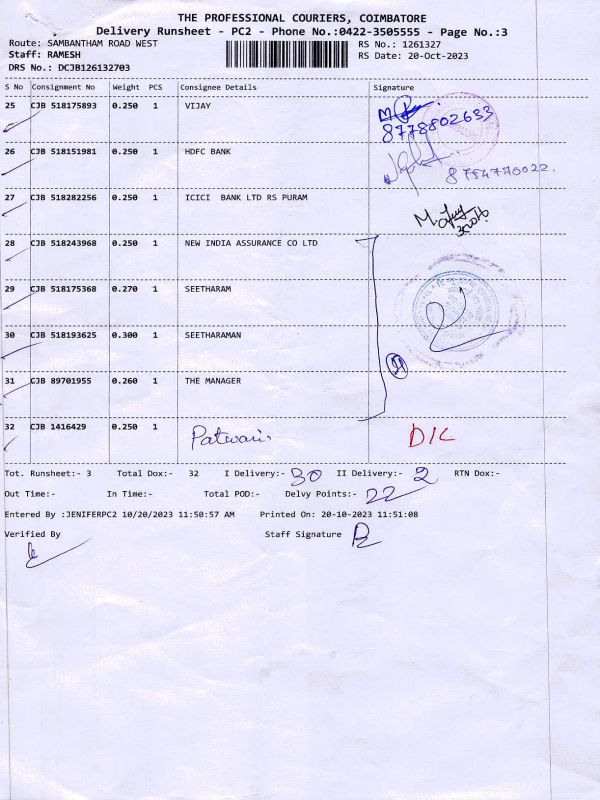 THE PROFESSIONAL COURIERS, COIMBATORE
Delivery Runsheet - PC2 - Phone No.:0422-3505555 - Page No.:3
Route: SAMBANTHAM ROAD WEST RS No.: 1261327
Staff: RAMESH RS Date: 20-Oct-2023
DRS No.: DCJB126132703
S No Consignment No Weight PCS Consignee Details Signature
25 CJB 518175893 0.250 1 VIJAY
8778802633
26 CJB 518151981 0.250 1 HDFC BANK
8754770022.
27 CJB 518282256 0.250 1 ICICI BANK LTD RS PURAM
28 CJB 518243968 0.250 1 NEW INDIA ASSURANCE CO LTD
29 CJB 518175368 0.270 1 SEETHARAM
30 CJB 518193625 0.300 1 SEETHARAMAN
31 CJB 89701955 0.260 1 THE MANAGER
32 CJB 1416429 0.250 1 Patwari. D/L
Tot. Runsheet:- 3 Total Dox:- 32 I Delivery:- 30 II Delivery:- 2 RTN Dox:-
Out Time:- In Time:- Total POD:- Delvy Points:- 22
Entered By :JENIFERPC2 10/20/2023 11:50:57 AM Printed On: 20-10-2023 11:51:08
Verified By Staff Signature